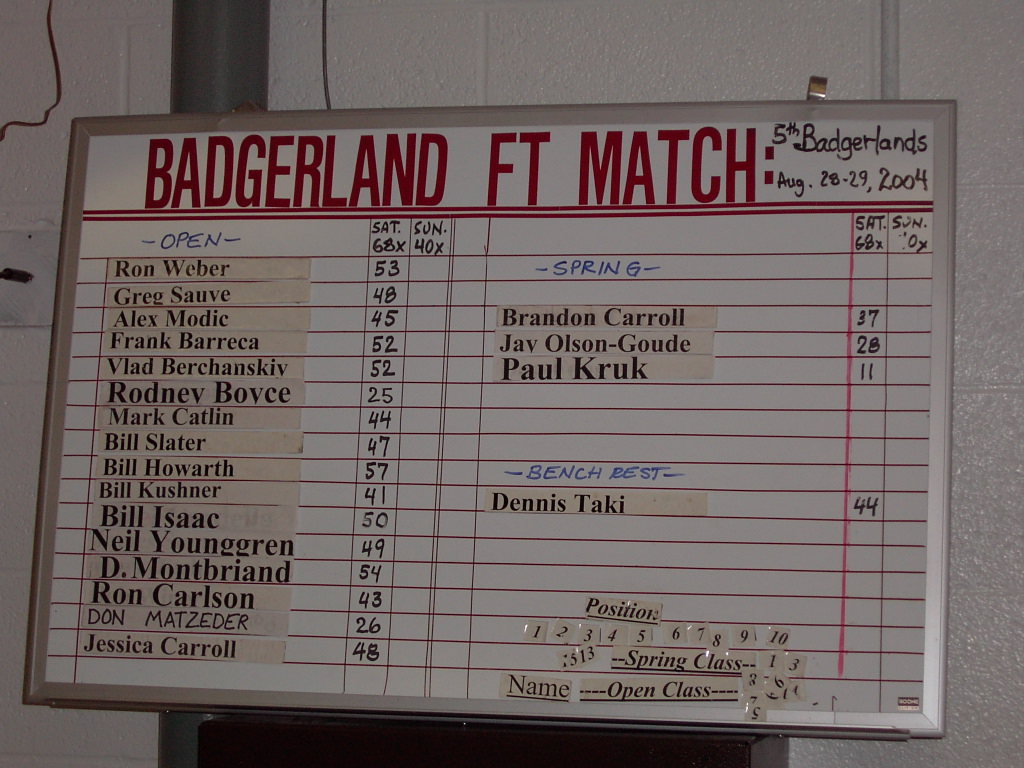 BADGERLAND FT MATCH: 5th Badgerlands
Aug. 28-29, 2004
-OPEN- SAT. 68x SUN. 40x
Ron Weber 53
Greg Sauve 48
Alex Modic 45
Frank Barreca 52
Vlad Berchanskiy 52
Rodney Boyce 25
Mark Catlin 44
Bill Slater 47
Bill Howarth 57
Bill Kushner 41
Bill Isaac 50
Neil Younggren 49
D. Montbriand 54
Ron Carlson 43
DON MATZEDER 26
Jessica Carroll 48
SAT. 68x SUN.
-SPRING-
Brandon Carroll 37
Jay Olson-Goude 28
Paul Kruk 11
-BENCH REST-
Dennis Taki 44
Position:
1 2 3 4 5 6 7 8 9 10
--Spring Class-- 1 3
Name ----Open Class----